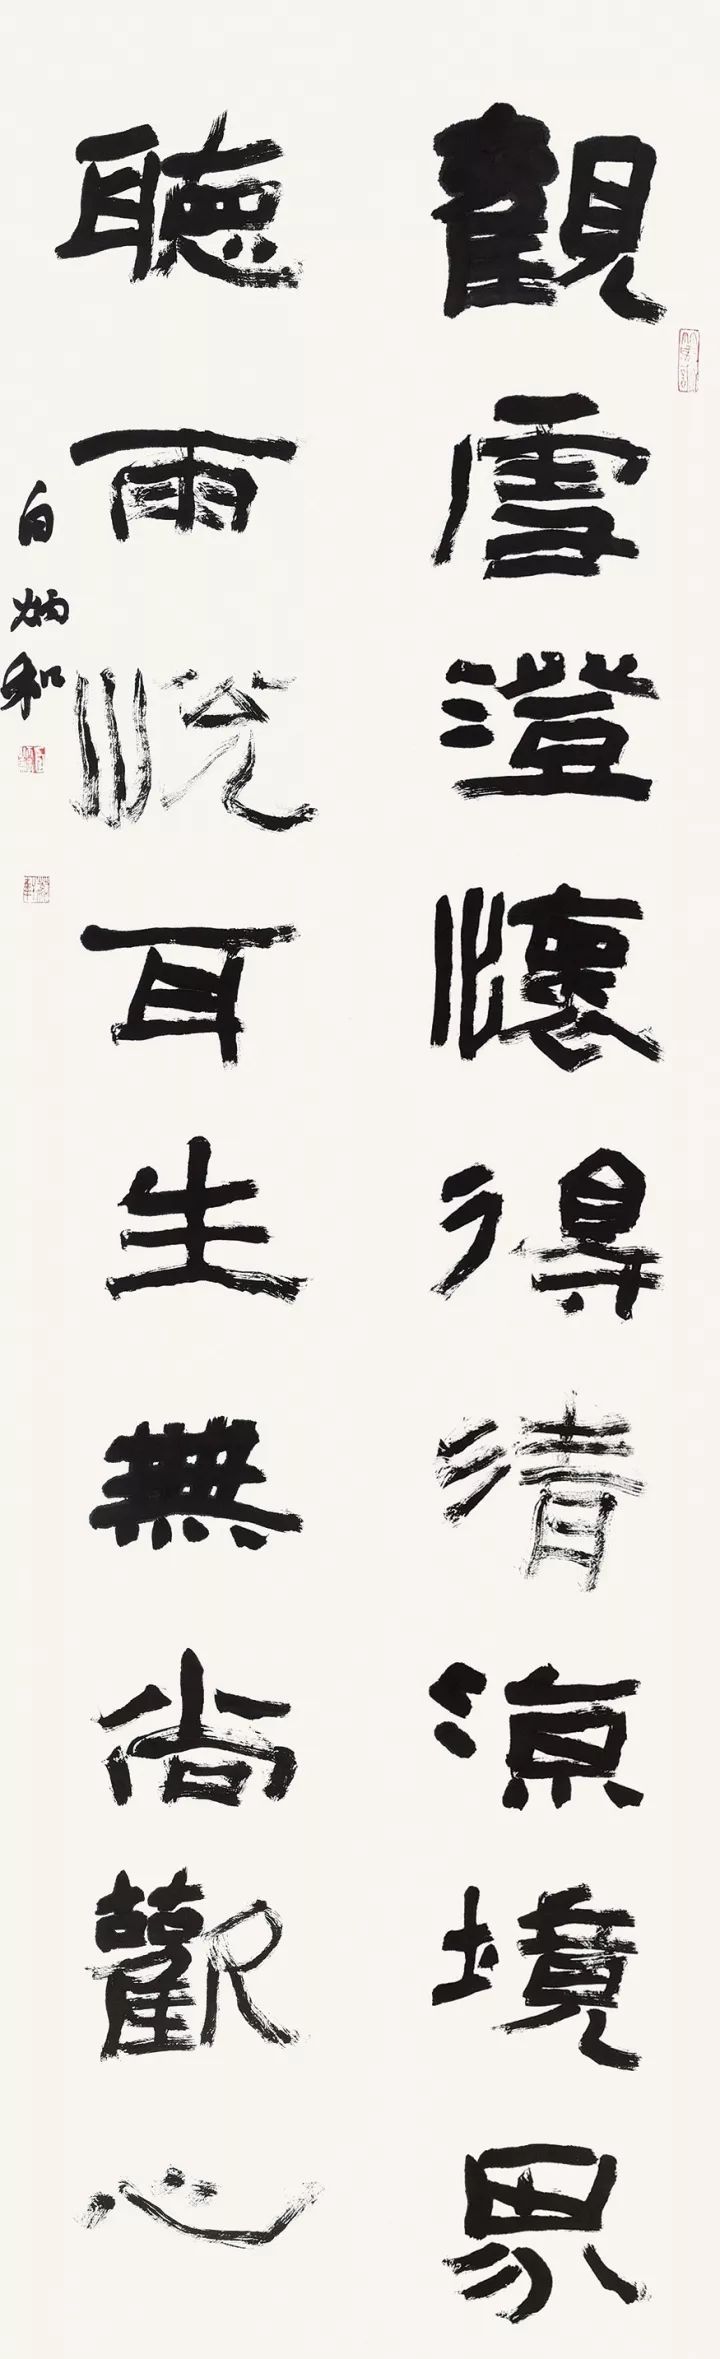 觀雪澄懷得清涼境界
聽雨悅耳生無尚歡心
白炳和